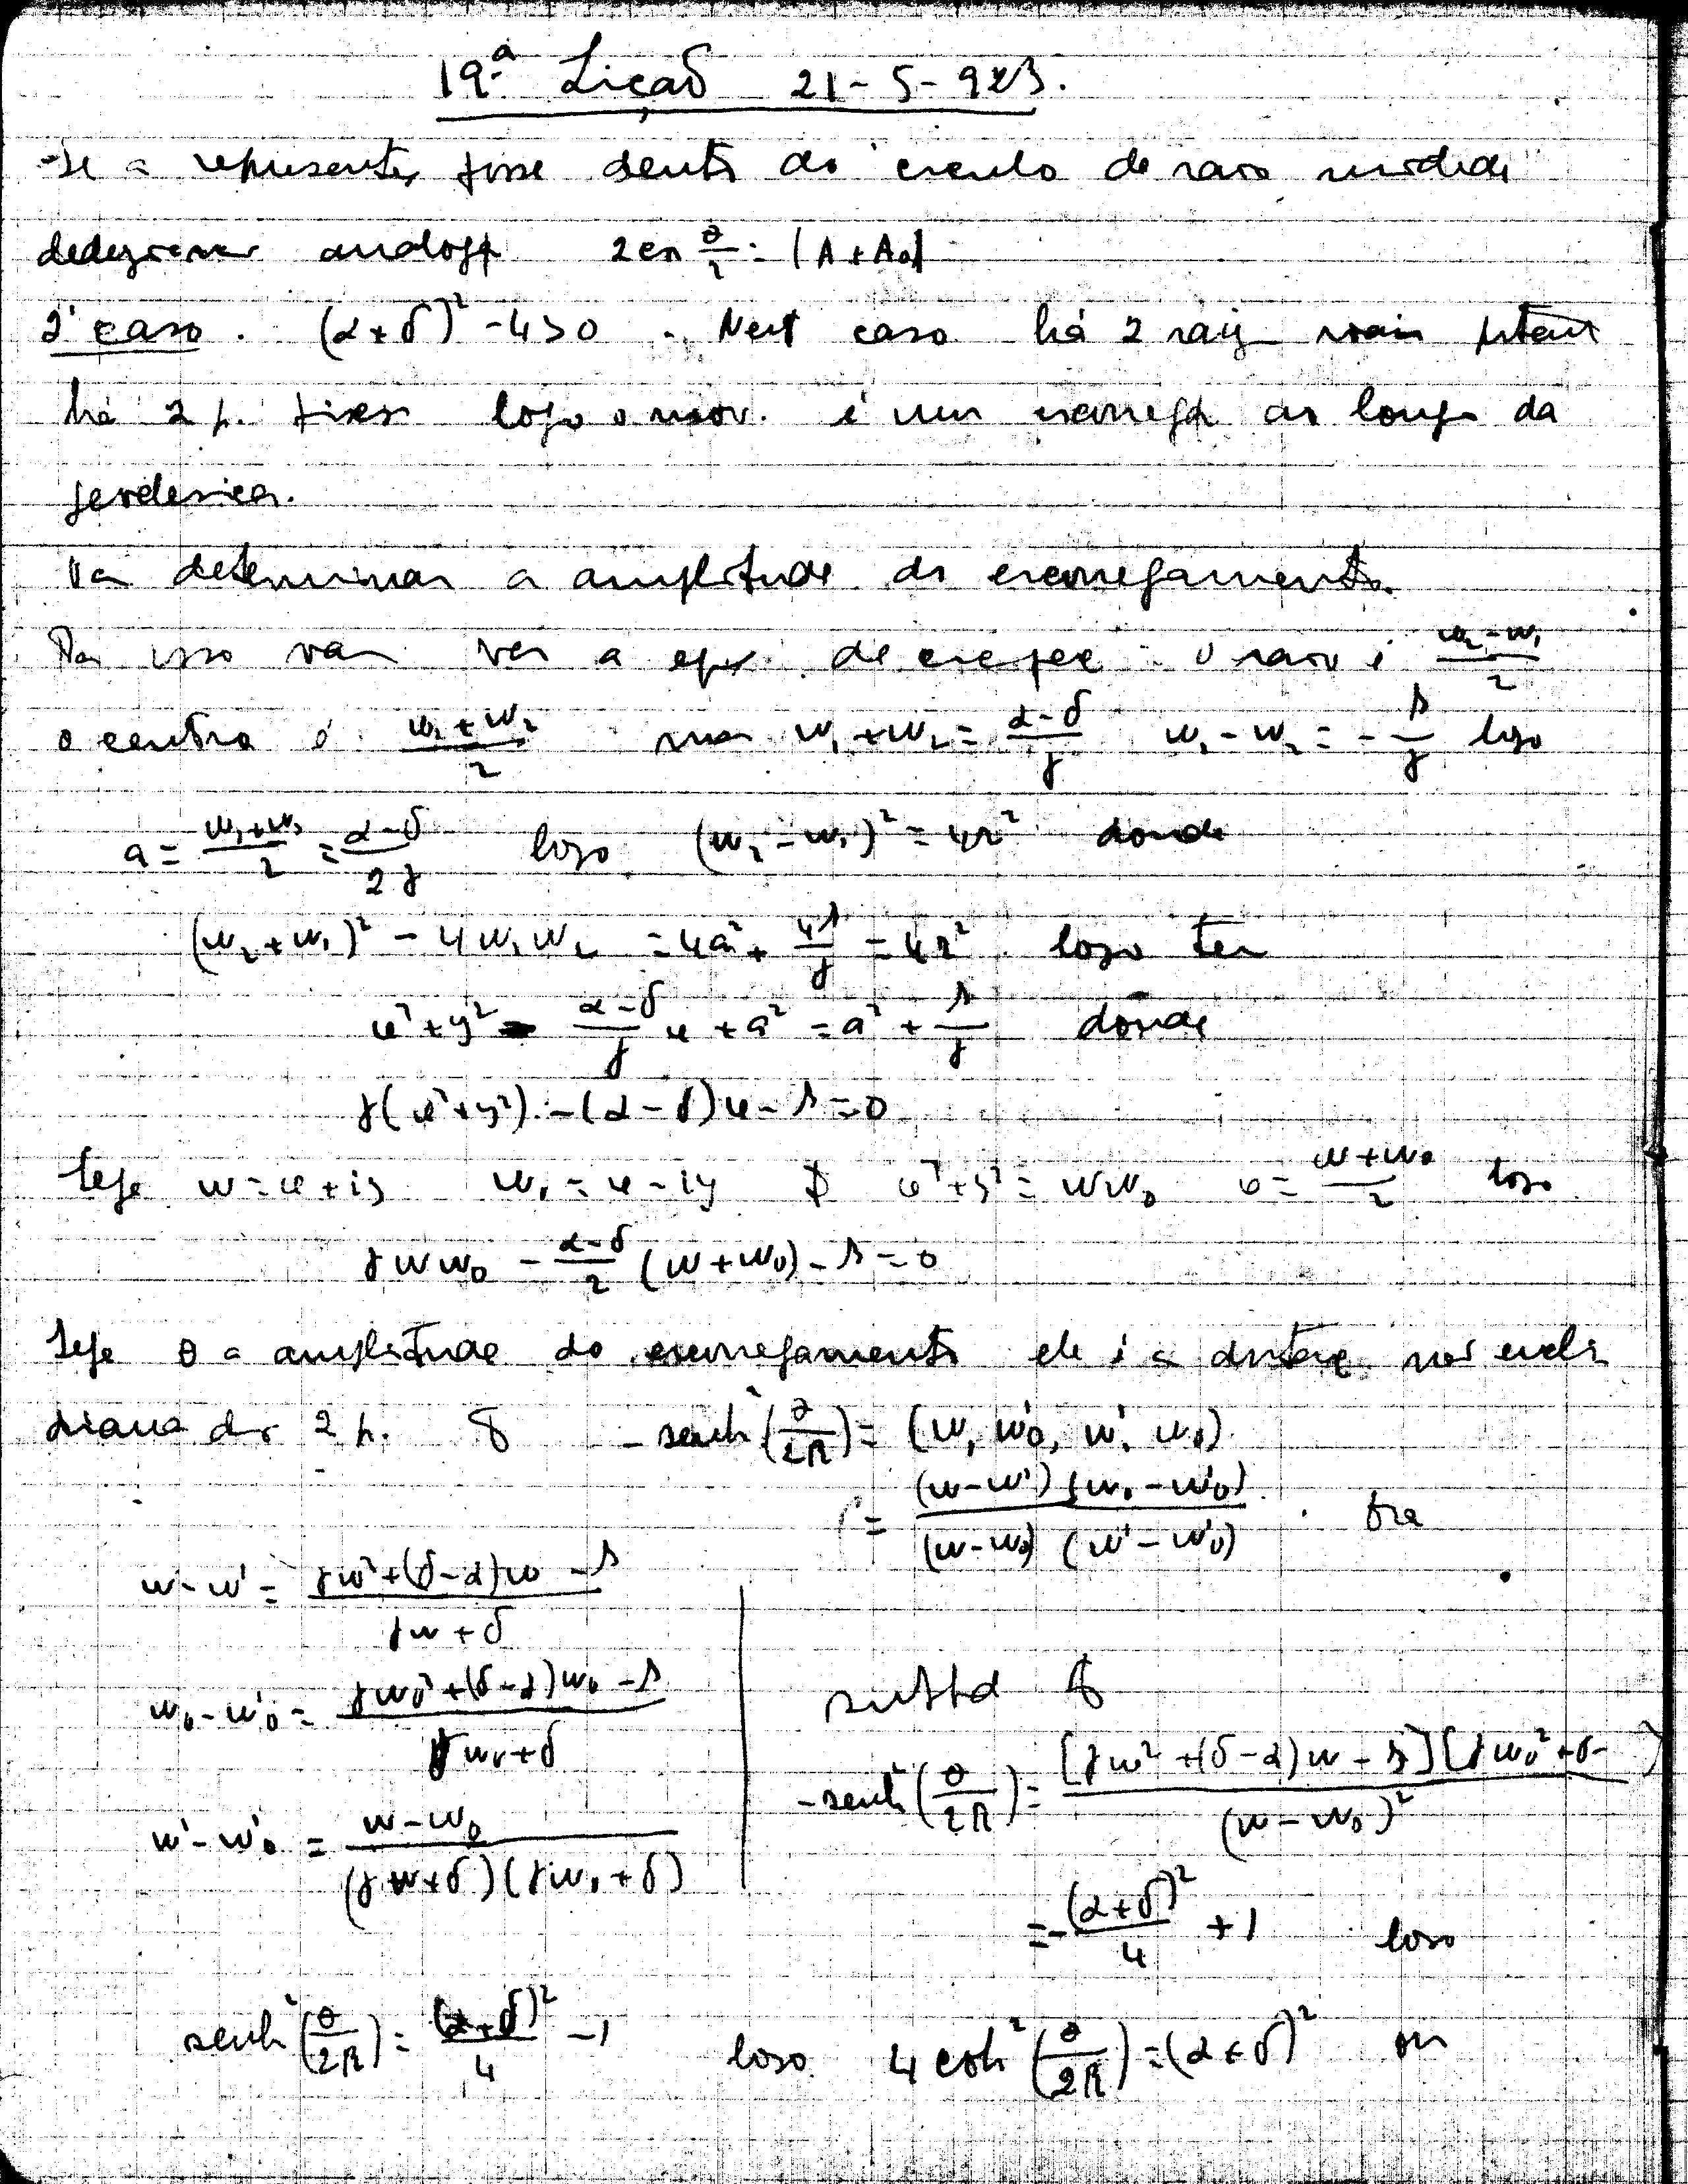 19.ª Lição 21-5-923.
Se a represent. fosse dentro do circulo de raio unidade
analoga 2 cos θ/2 = |A + A₀|
2º caso. (α+δ)² - 4 > 0. Neste caso há 2 raiz reais
há 2 p. fixos logo o mov. é um escorrega ao longo da
geodesica.
Va determinar a amplitude do escorregamento.
Para isso vam ver a eq. O raio é (w₂ - w₁)/2
o centro é (w₁ + w₂)/2 mas w₁ + w₂ = (α-δ)/γ w₁ - w₂ = - β/γ logo
a = (w₁+w₂)/2 = (α-δ)/2γ logo (w₂ - w₁)² = 4r² donde
(w₂ + w₁)² - 4w₁w₂ = 4a² + 4β/γ = 4r² logo tem
x² + y² - (α-δ)/γ x + a² = a² + β/γ donde
γ(x²+y²) - (α-δ)x - β = 0
Seja w = x + iy w₀ = x - iy x²+y² = ww₀ x = (w+w₀)/2 logo
γww₀ - (α-δ)/2 (w+w₀) - β = 0
Seja θ a amplitude do escorregamento ele é a distanc. não eucli
diana dos 2 p. - senh²(θ/2R) = (w, w'₀, w', w₀)
= (w-w')(w₀-w'₀)/(w-w₀)(w'-w'₀). Ora
w - w' = (γw²+(δ-α)w - β)/(γw+δ)
w₀ - w'₀ = (γw₀²+(δ-α)w₀ - β)/(γw₀+δ)
w' - w'₀ = (w-w₀)/(γw+δ)(γw₀+δ)
-senh²(θ/2R) = [γw²+(δ-α)w - β][γw₀²+δ- ]/(w-w₀)²
= -(α+δ)²/4 + 1 logo
senh²(θ/2R) = (α+δ)²/4 - 1 logo 4 coh²(θ/2R) = (α+δ)² ou